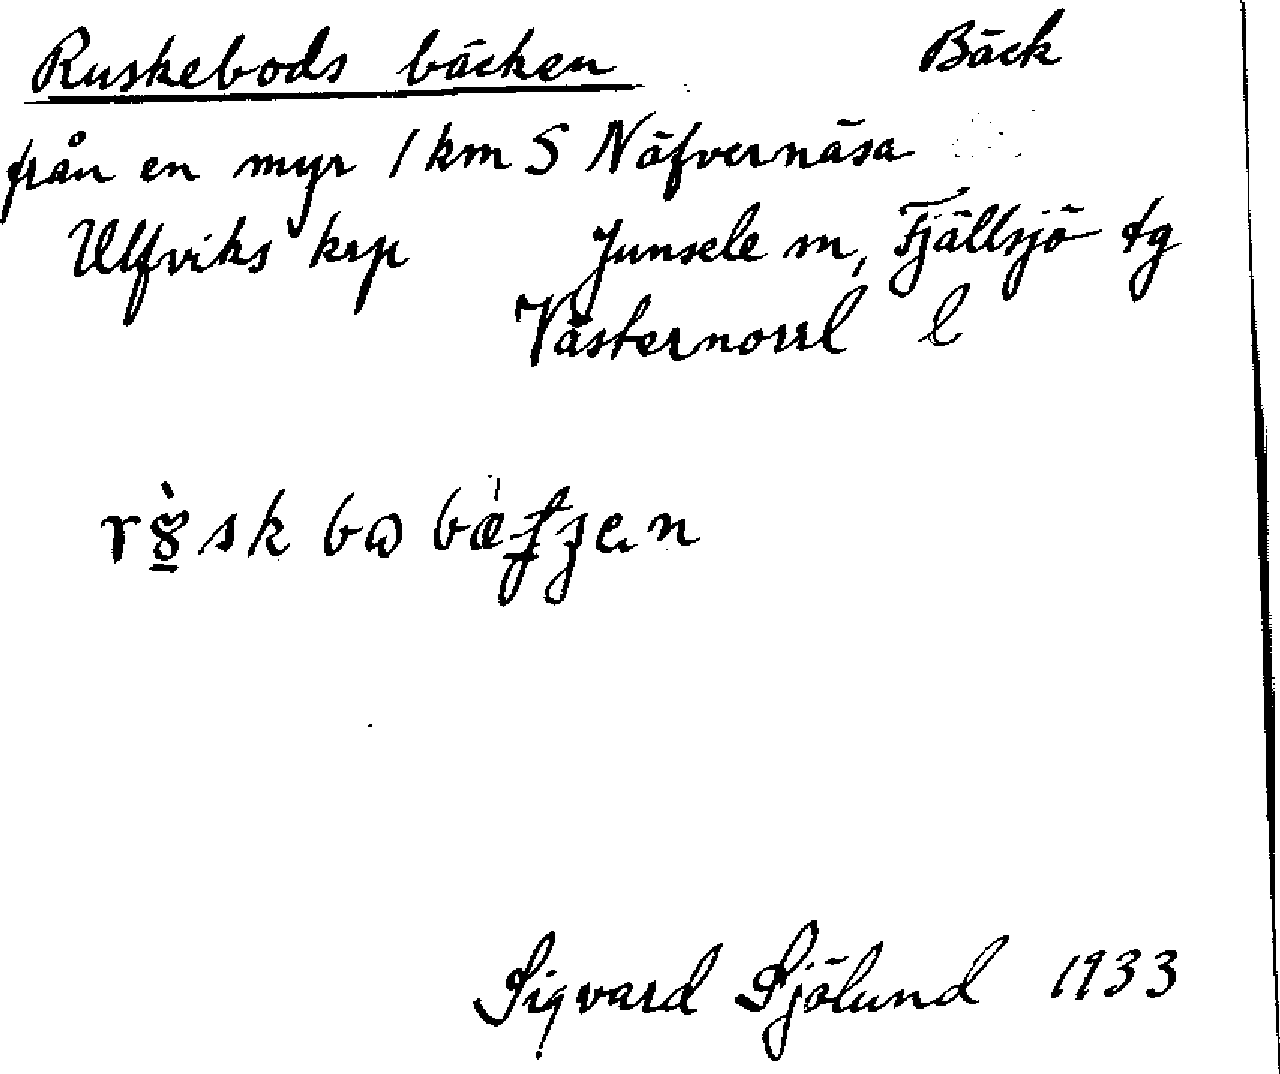 Ruskebods bäcken Bäck
från en myr 1 km S Näfvernäsa
Ulfviks krp Junsele sn, Fjällsjö tg
Västernorrl l
Sigvard Sjölund 1933